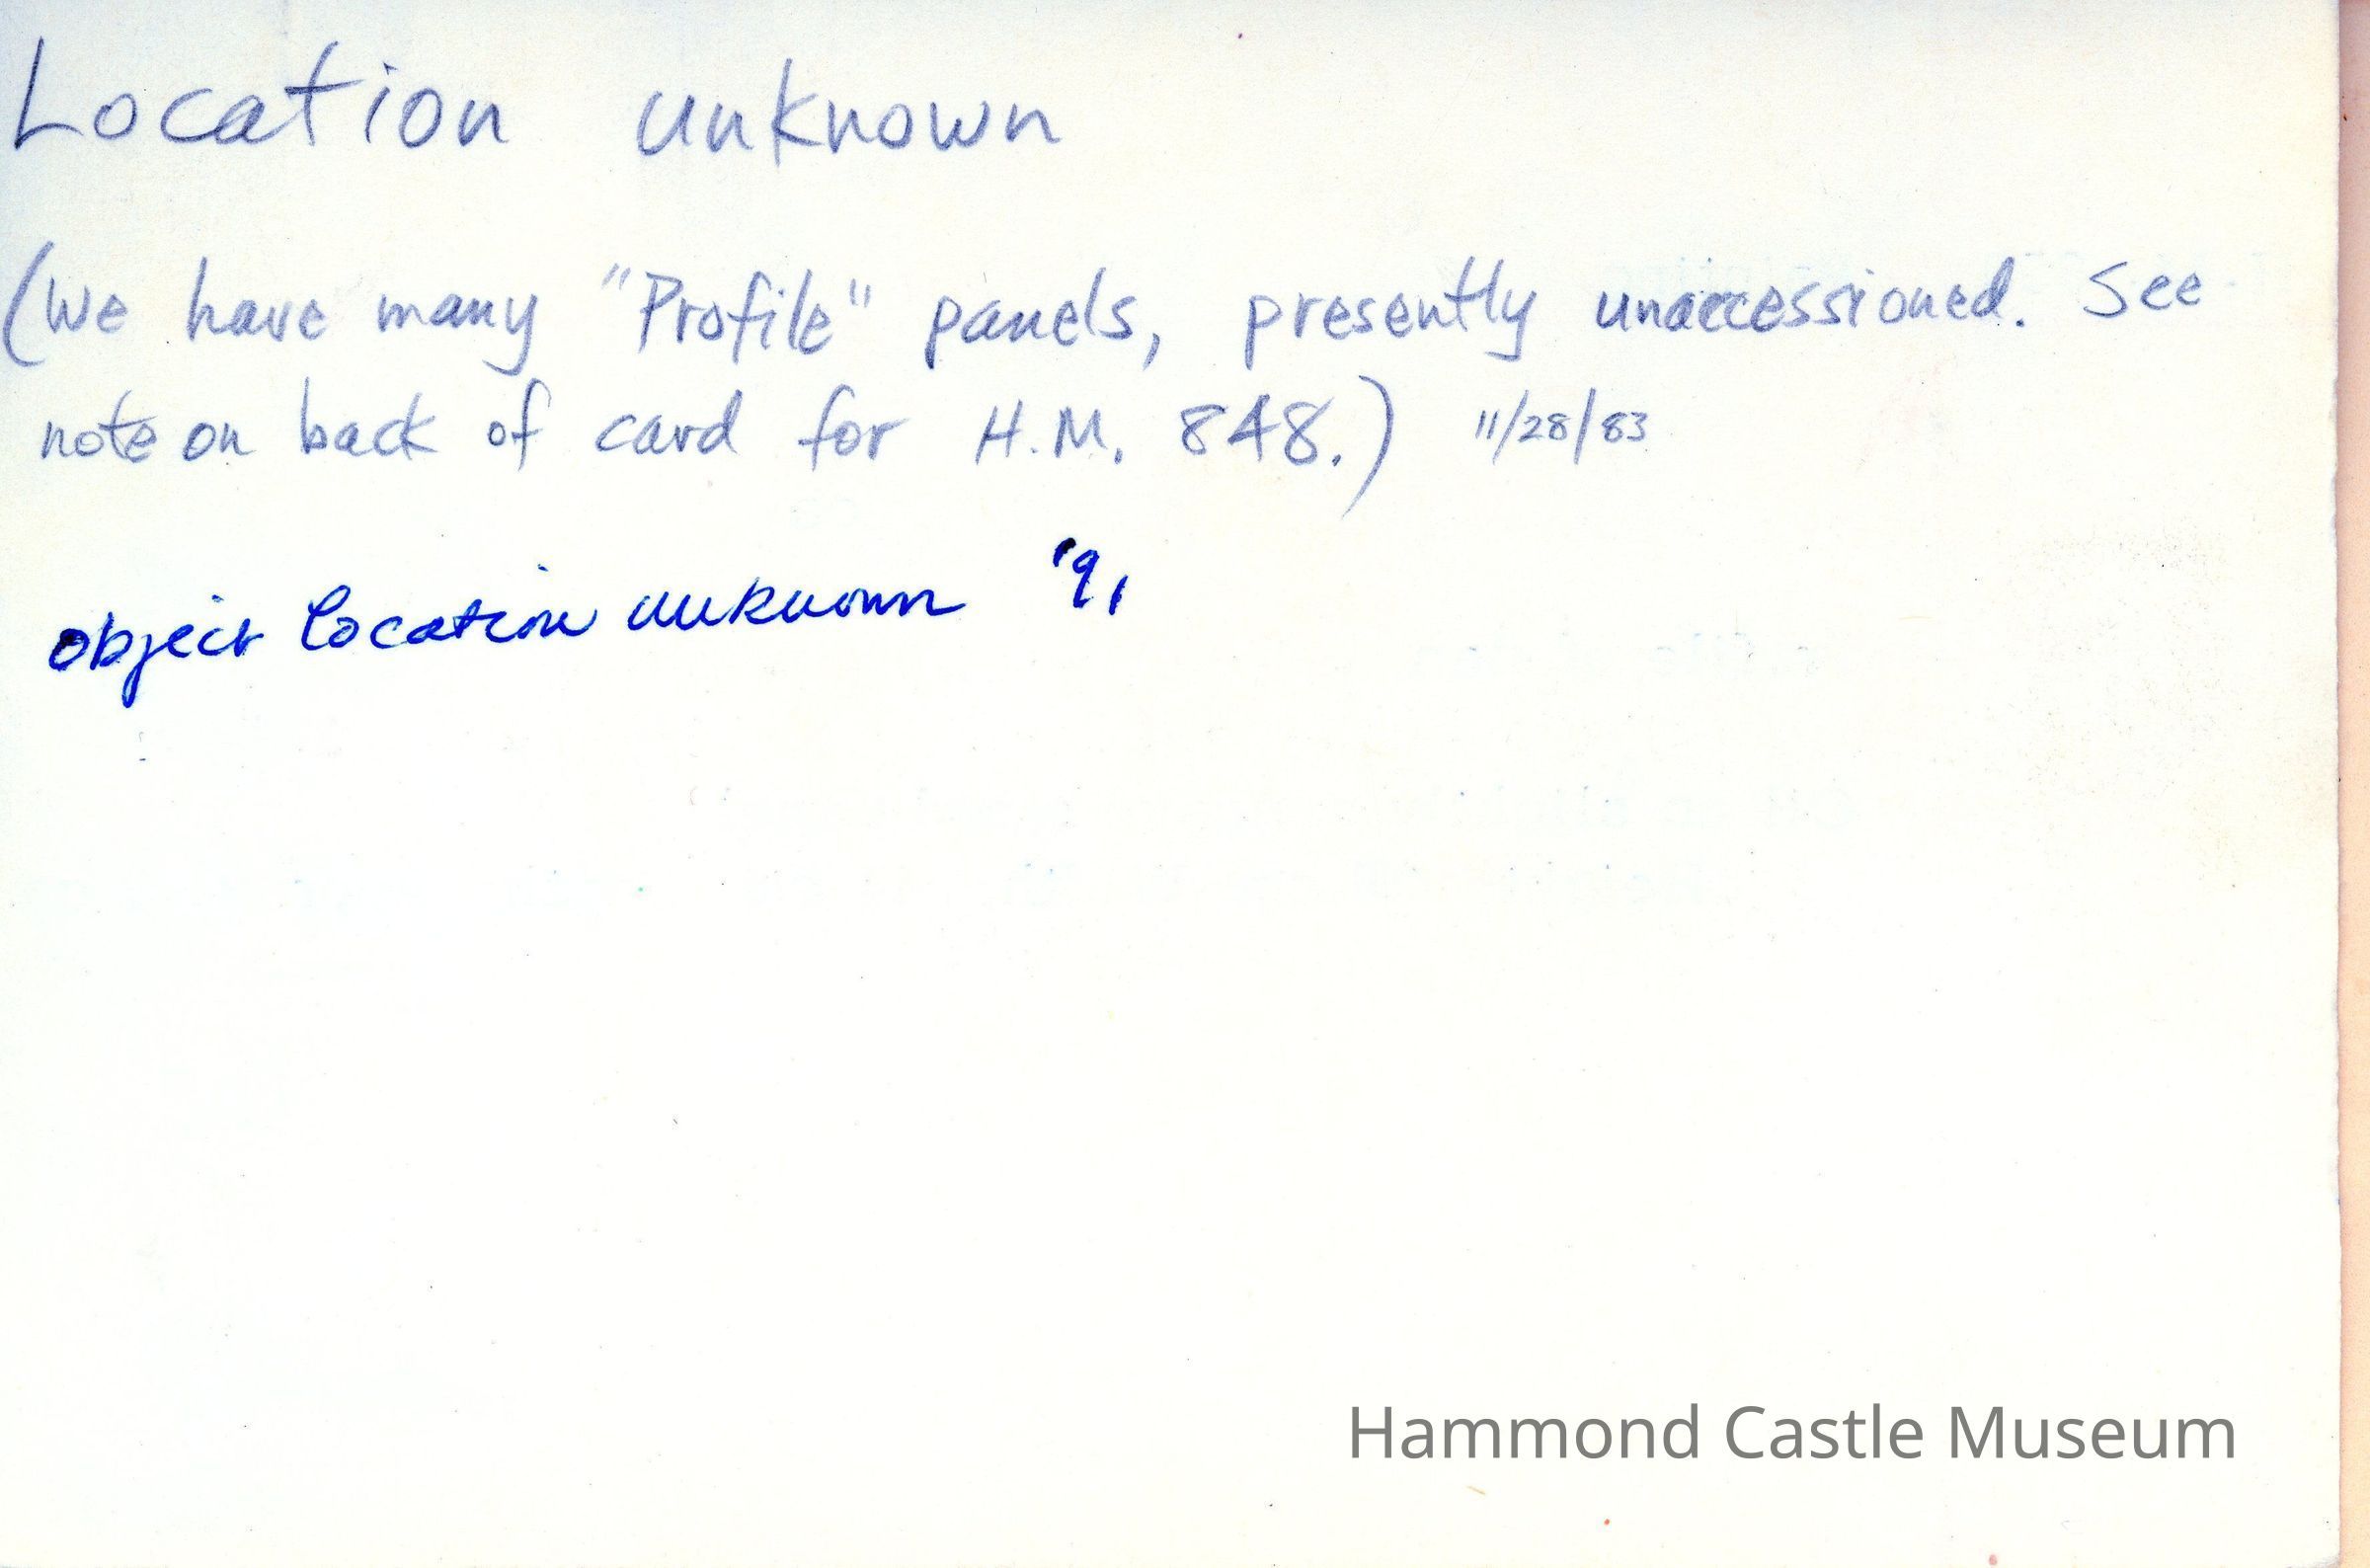 Location unknown
(We have many "Profile" panels, presently unaccessioned. See
note on back of card for H.M. 848.) 11/28/83
object location unknown '91
Hammond Castle Museum